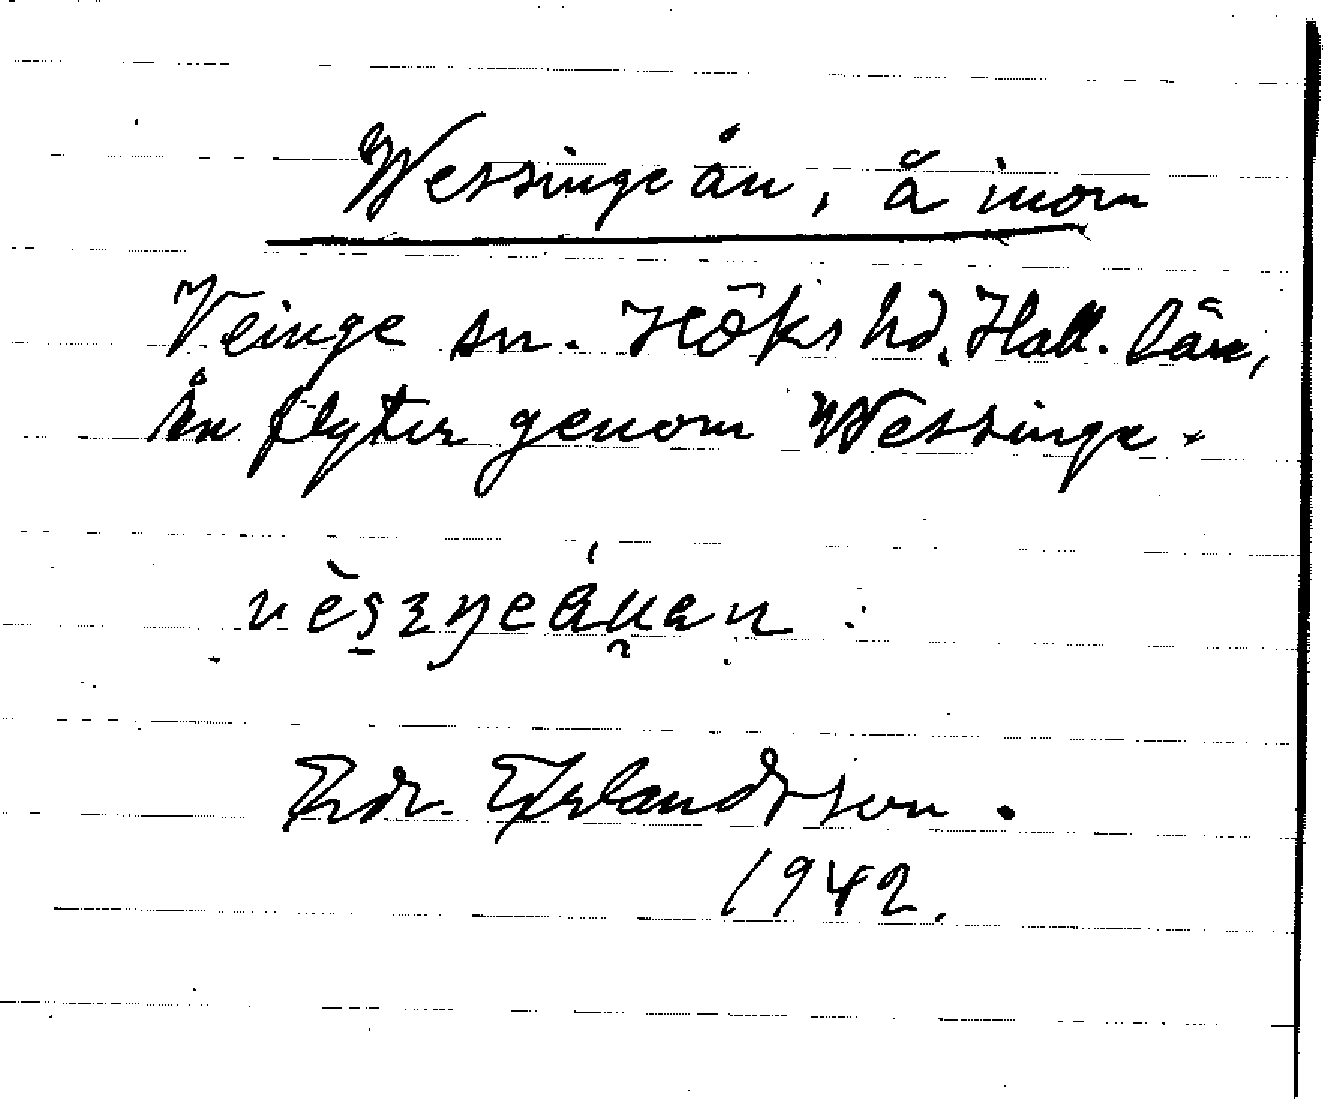 Wessingeån, å inom
Veinge sn. Höks hd. Hall. län,
Ån flyter genom Wessinge.
Erlandsson.
1942.